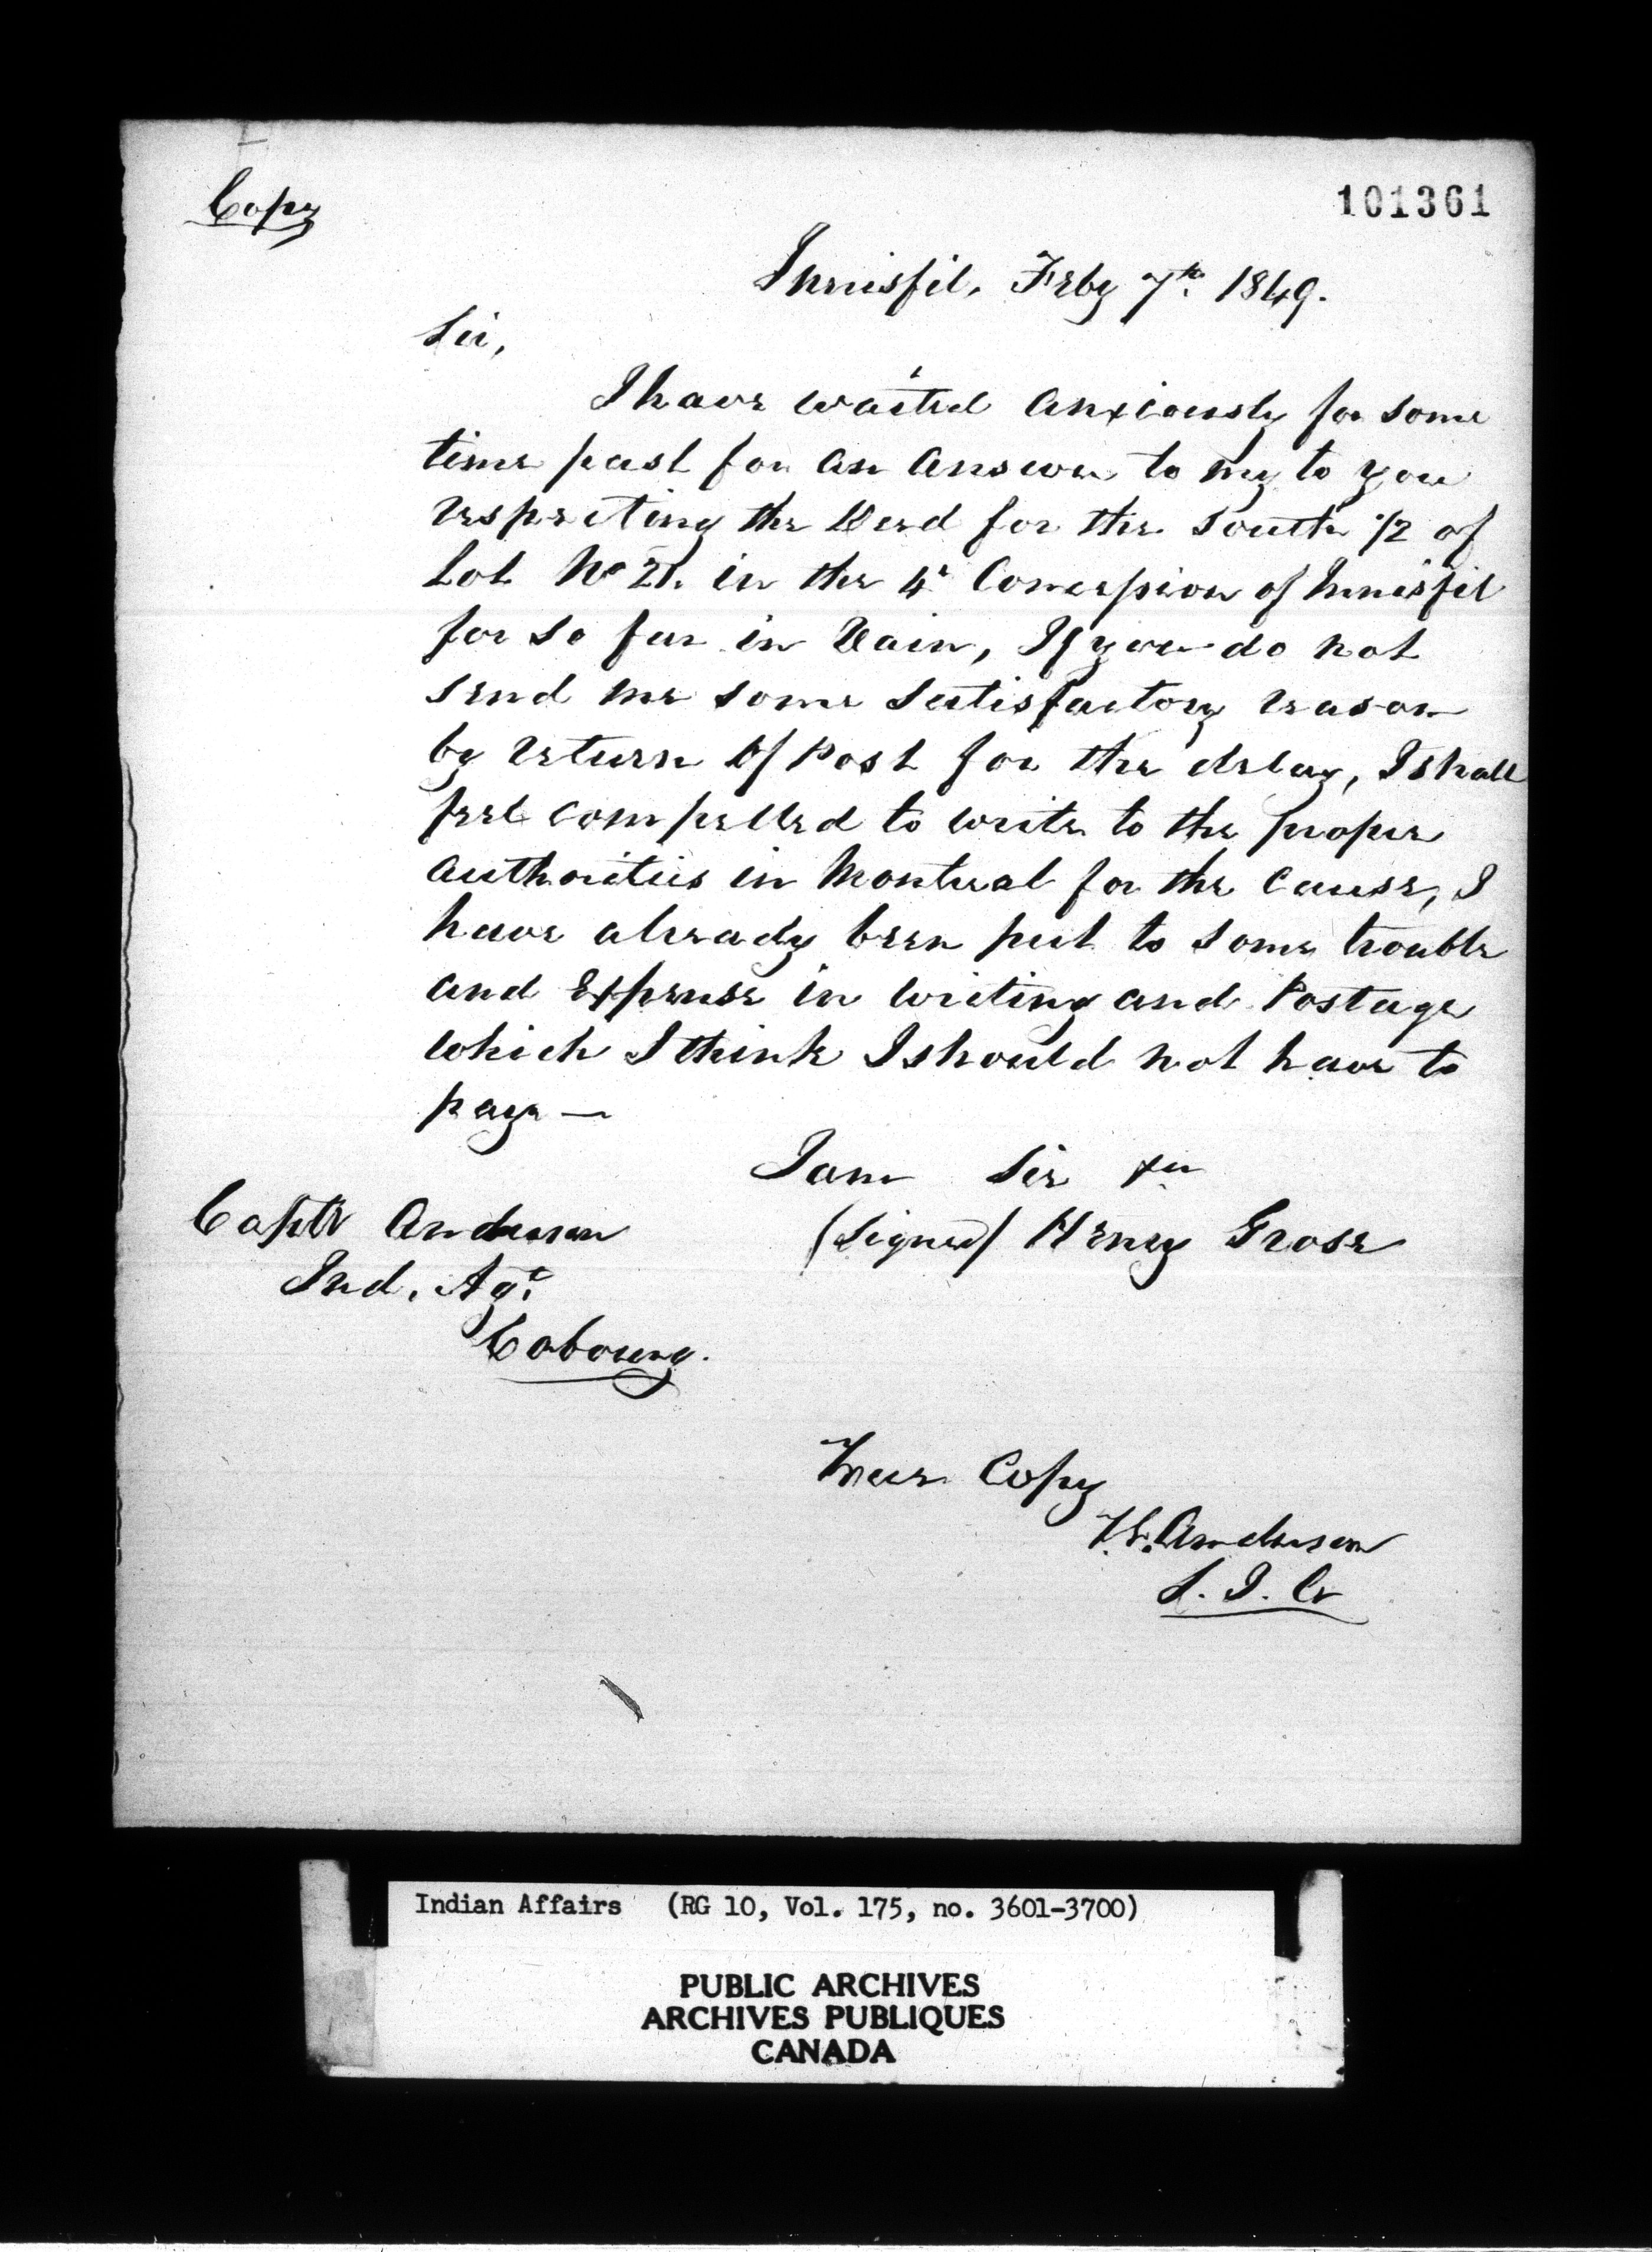 Copy
101361
Innisfil, Feby 7th 1849.
Sir,
I have waited anxiously for some
time past for an answer to my to you
respecting the Deed for the South 1/2 of
Lot No 21. in the 4th Concession of Innisfil
for so far in Vain, If you do not
send me some satisfactory reason
by return of Post for the delay, I shall
feel compelled to write to the proper
authorities in Montreal for the cause, I
have already been put to some trouble
and Expense in writing and Postage
which I think I should not have to
paye —
I am Sir &c
(Signed) Henry Grose
Captn Anderson
Ind. Agt
Cobourg.
True Copy
T.G. Anderson
S. I. A
Indian Affairs (RG 10, Vol. 175, no. 3601-3700)
PUBLIC ARCHIVES
ARCHIVES PUBLIQUES
CANADA